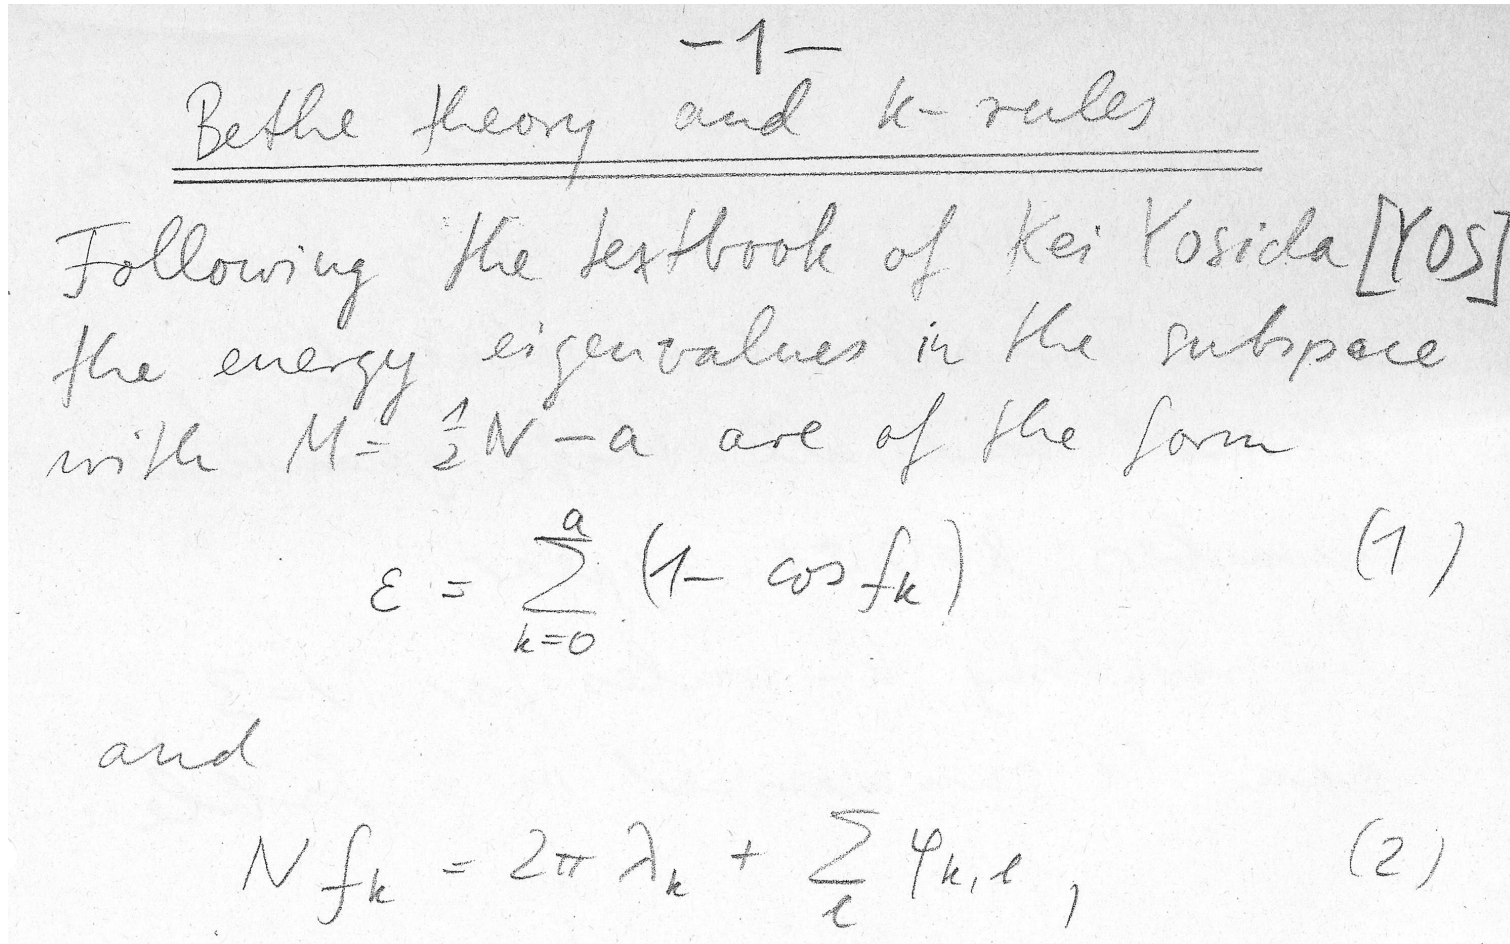 -1-
Bethe theory and k-rules
Following the textbook of Kei Yosida [YOS]
the energy eigenvalues in the subspace
with M = 1/2 N - a are of the form
ε = ∑_{k=0}^{a} (1 - cos f_k) (1)
and
N f_k = 2π λ_k + ∑_l φ_{k,l} , (2)